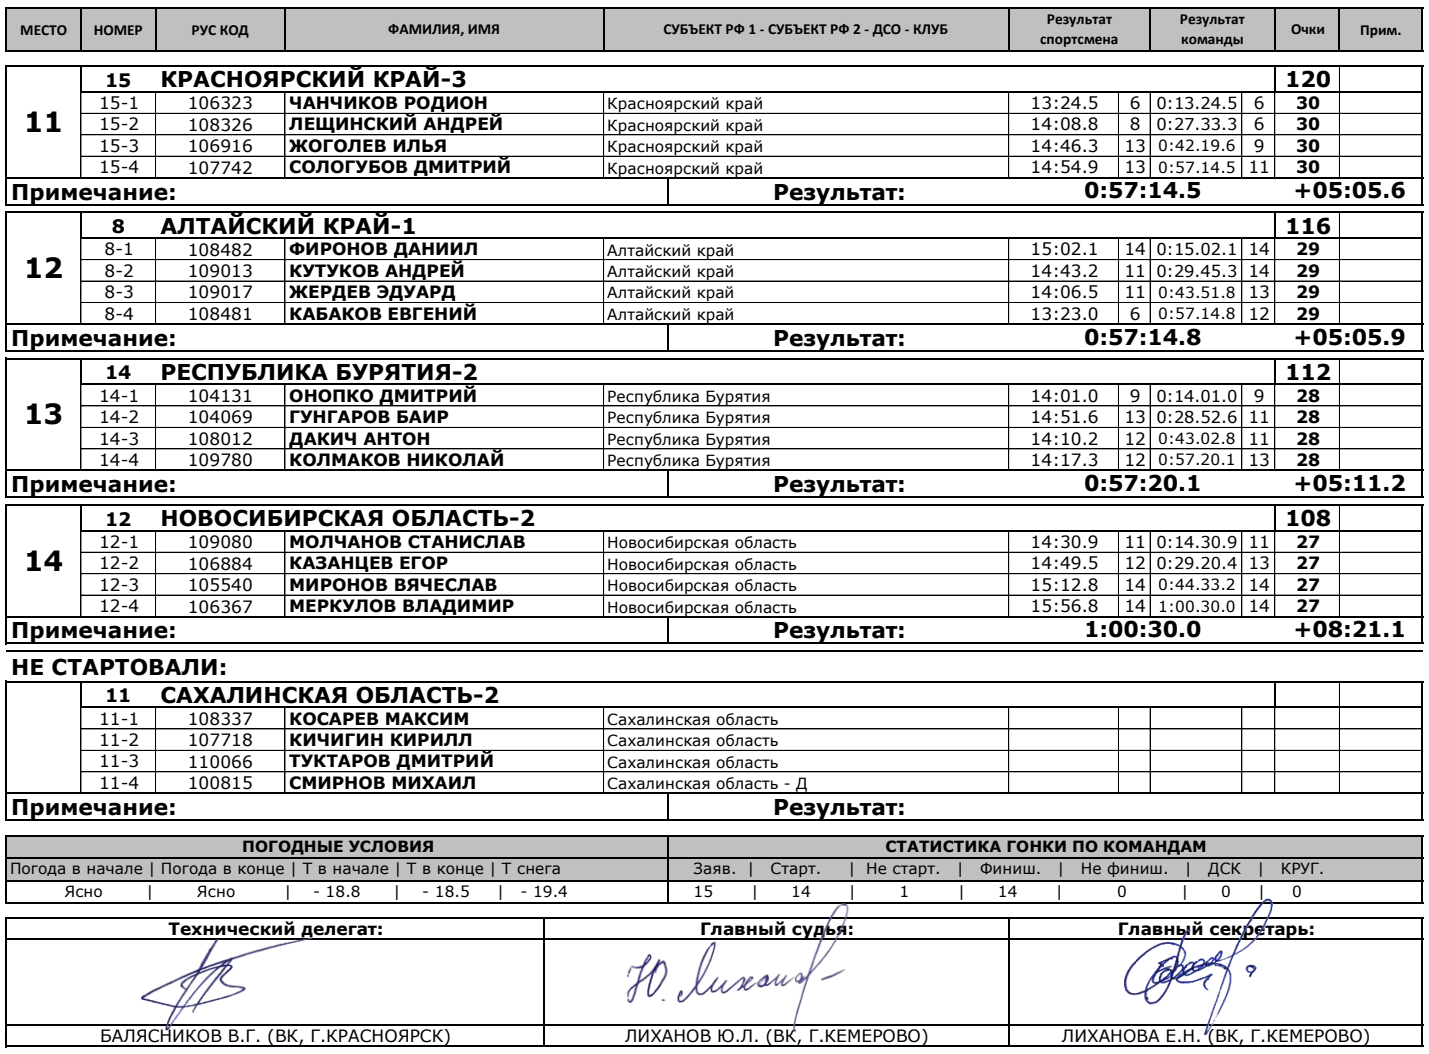 МЕСТО НОМЕР РУС КОД ФАМИЛИЯ, ИМЯ СУБЪЕКТ РФ 1 - СУБЪЕКТ РФ 2 - ДСО - КЛУБ Результат спортсмена Результат команды Очки Прим.
15 КРАСНОЯРСКИЙ КРАЙ-3 120
11
15-1 106323 ЧАНЧИКОВ РОДИОН Красноярский край 13:24.5 6 0:13.24.5 6 30
15-2 108326 ЛЕЩИНСКИЙ АНДРЕЙ Красноярский край 14:08.8 8 0:27.33.3 6 30
15-3 106916 ЖОГОЛЕВ ИЛЬЯ Красноярский край 14:46.3 13 0:42.19.6 9 30
15-4 107742 СОЛОГУБОВ ДМИТРИЙ Красноярский край 14:54.9 13 0:57.14.5 11 30
Примечание: Результат: 0:57:14.5 +05:05.6
8 АЛТАЙСКИЙ КРАЙ-1 116
12
8-1 108482 ФИРОНОВ ДАНИИЛ Алтайский край 15:02.1 14 0:15.02.1 14 29
8-2 109013 КУТУКОВ АНДРЕЙ Алтайский край 14:43.2 11 0:29.45.3 14 29
8-3 109017 ЖЕРДЕВ ЭДУАРД Алтайский край 14:06.5 11 0:43.51.8 13 29
8-4 108481 КАБАКОВ ЕВГЕНИЙ Алтайский край 13:23.0 6 0:57.14.8 12 29
Примечание: Результат: 0:57:14.8 +05:05.9
14 РЕСПУБЛИКА БУРЯТИЯ-2 112
13
14-1 104131 ОНОПКО ДМИТРИЙ Республика Бурятия 14:01.0 9 0:14.01.0 9 28
14-2 104069 ГУНГАРОВ БАИР Республика Бурятия 14:51.6 13 0:28.52.6 11 28
14-3 108012 ДАКИЧ АНТОН Республика Бурятия 14:10.2 12 0:43.02.8 11 28
14-4 109780 КОЛМАКОВ НИКОЛАЙ Республика Бурятия 14:17.3 12 0:57.20.1 13 28
Примечание: Результат: 0:57:20.1 +05:11.2
12 НОВОСИБИРСКАЯ ОБЛАСТЬ-2 108
14
12-1 109080 МОЛЧАНОВ СТАНИСЛАВ Новосибирская область 14:30.9 11 0:14.30.9 11 27
12-2 106884 КАЗАНЦЕВ ЕГОР Новосибирская область 14:49.5 12 0:29.20.4 13 27
12-3 105540 МИРОНОВ ВЯЧЕСЛАВ Новосибирская область 15:12.8 14 0:44.33.2 14 27
12-4 106367 МЕРКУЛОВ ВЛАДИМИР Новосибирская область 15:56.8 14 1:00.30.0 14 27
Примечание: Результат: 1:00:30.0 +08:21.1
НЕ СТАРТОВАЛИ:
11 САХАЛИНСКАЯ ОБЛАСТЬ-2
11-1 108337 КОСАРЕВ МАКСИМ Сахалинская область
11-2 107718 КИЧИГИН КИРИЛЛ Сахалинская область
11-3 110066 ТУКТАРОВ ДМИТРИЙ Сахалинская область
11-4 100815 СМИРНОВ МИХАИЛ Сахалинская область - Д
Примечание: Результат:
ПОГОДНЫЕ УСЛОВИЯ СТАТИСТИКА ГОНКИ ПО КОМАНДАМ
Погода в начале | Погода в конце | Т в начале | Т в конце | Т снега Заяв. | Старт. | Не старт. | Финиш. | Не финиш. | ДСК | КРУГ.
Ясно | Ясно | - 18.8 | - 18.5 | - 19.4 15 | 14 | 1 | 14 | 0 | 0 | 0
Технический делегат: Главный судья: Главный секретарь:
Ю. Лиханов
БАЛЯСНИКОВ В.Г. (ВК, Г.КРАСНОЯРСК) ЛИХАНОВ Ю.Л. (ВК, Г.КЕМЕРОВО) ЛИХАНОВА Е.Н. (ВК, Г.КЕМЕРОВО)